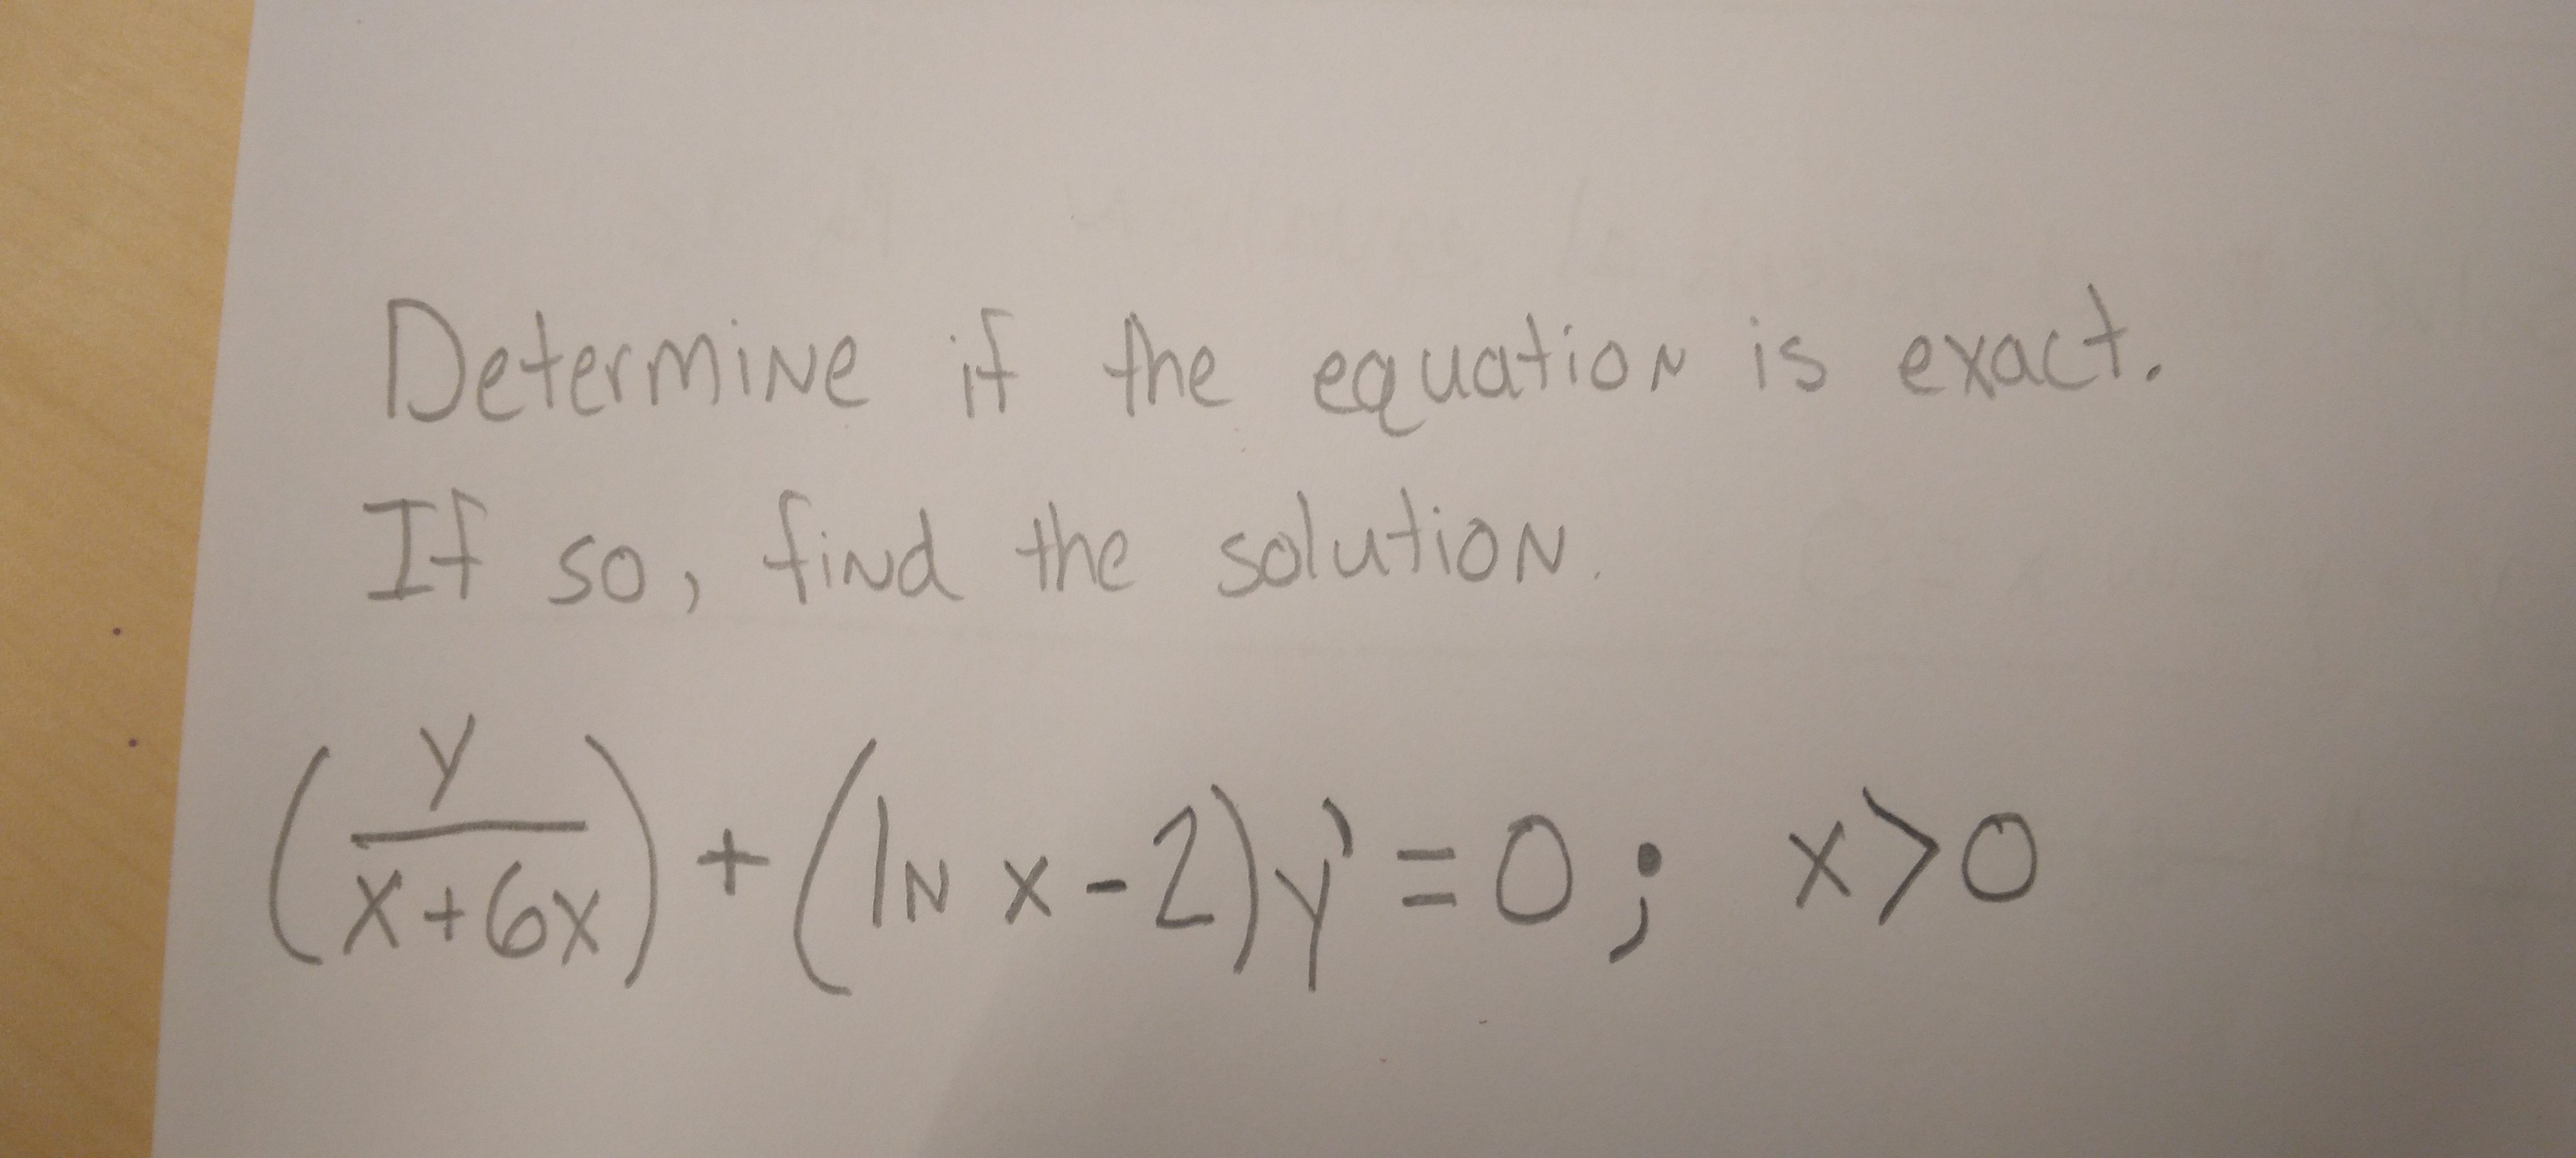 Determine if the equation is exact.
If so, find the solution.
(y/(x+6x)) + (ln x-2)y' = 0; x>0